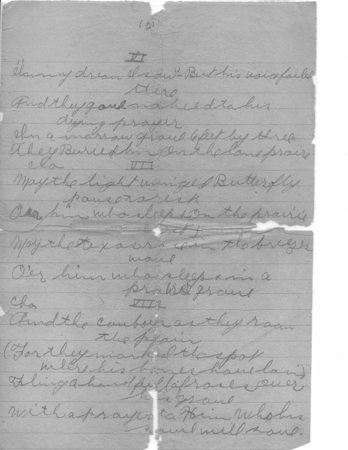 (2)
VI
dream I saw But his voice failed
there
And they gave no heed to his
dying prayer
In a narrow grave 6 feet by three
They Buried him on the lone prairie
Cho
VII
May the light winged Butterfly
pause to rest
O'er him who sleeps on the prairie
May the Texas in the breezes
wave
O'er him who sleeps in a
prairie grave
Cho
VIII
And the cowboys as they roam
the plain
(For they marked the spot
where his bones have lain)
Fling a hand full of roses over
his grave
With a prayer to Him Who his
soul will save.